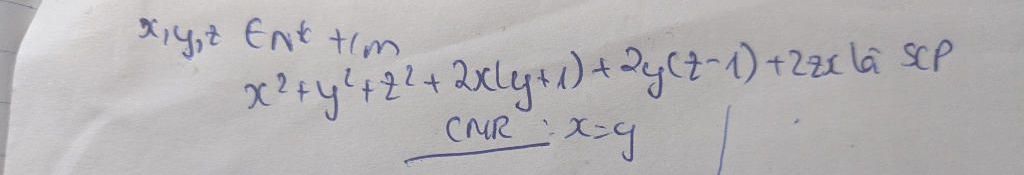 x,y,z ∈ N* t/m
x² + y² + z² + 2x(y+1) + 2y(z-1) + 2zx là SCP
CMR : x=y